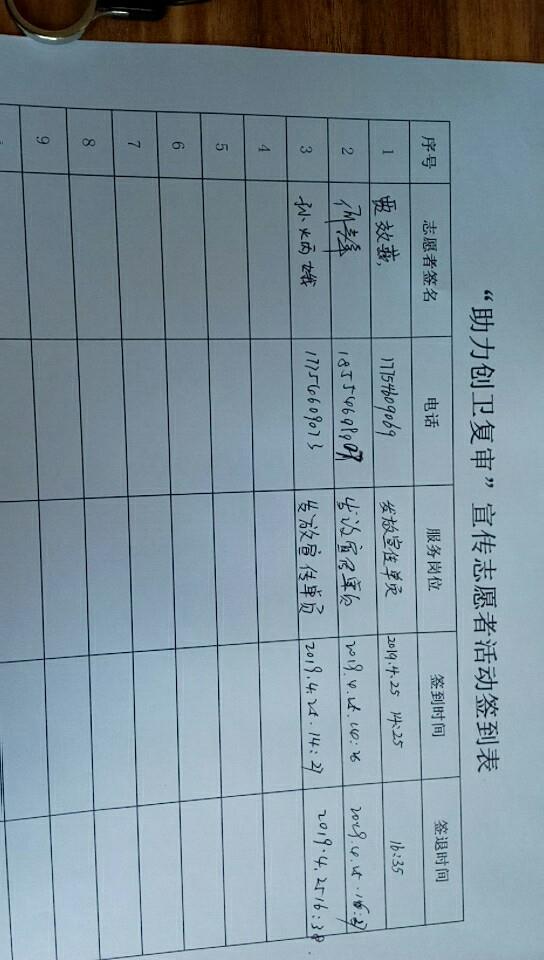 “助力创卫复审”宣传志愿者活动签到表
序号 志愿者签名 电话 服务岗位 签到时间 签退时间
1 贾效燕 17754609069 发放宣传单页 2019.4.25 14:25 16:35
2 发放宣传单页
3 孙炳娥 17754609073 发放宣传单员 2019.4.25.14:27 2019.4.25 16:38
4
5
6
7
8
9